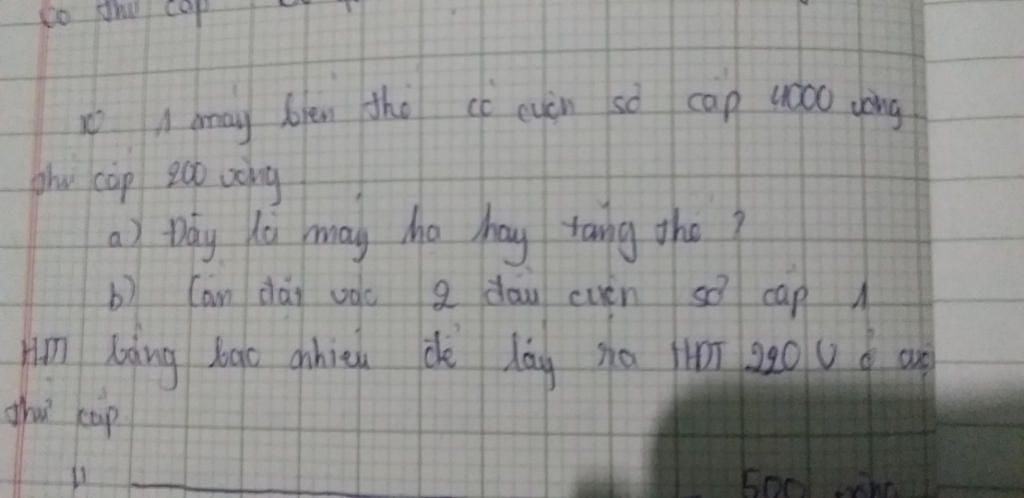 có thứ cấp
10 1 máy biến thế có cuộn sơ cấp 4000 vòng
thứ cấp 200 vòng
a) Đây là máy hạ hay tăng thế ?
b) Cần đặt vào 2 đầu cuộn sơ cấp 1
HĐT bằng bao nhiêu để lấy ra HĐT 220 V ở
thứ cấp
11 500 vòng